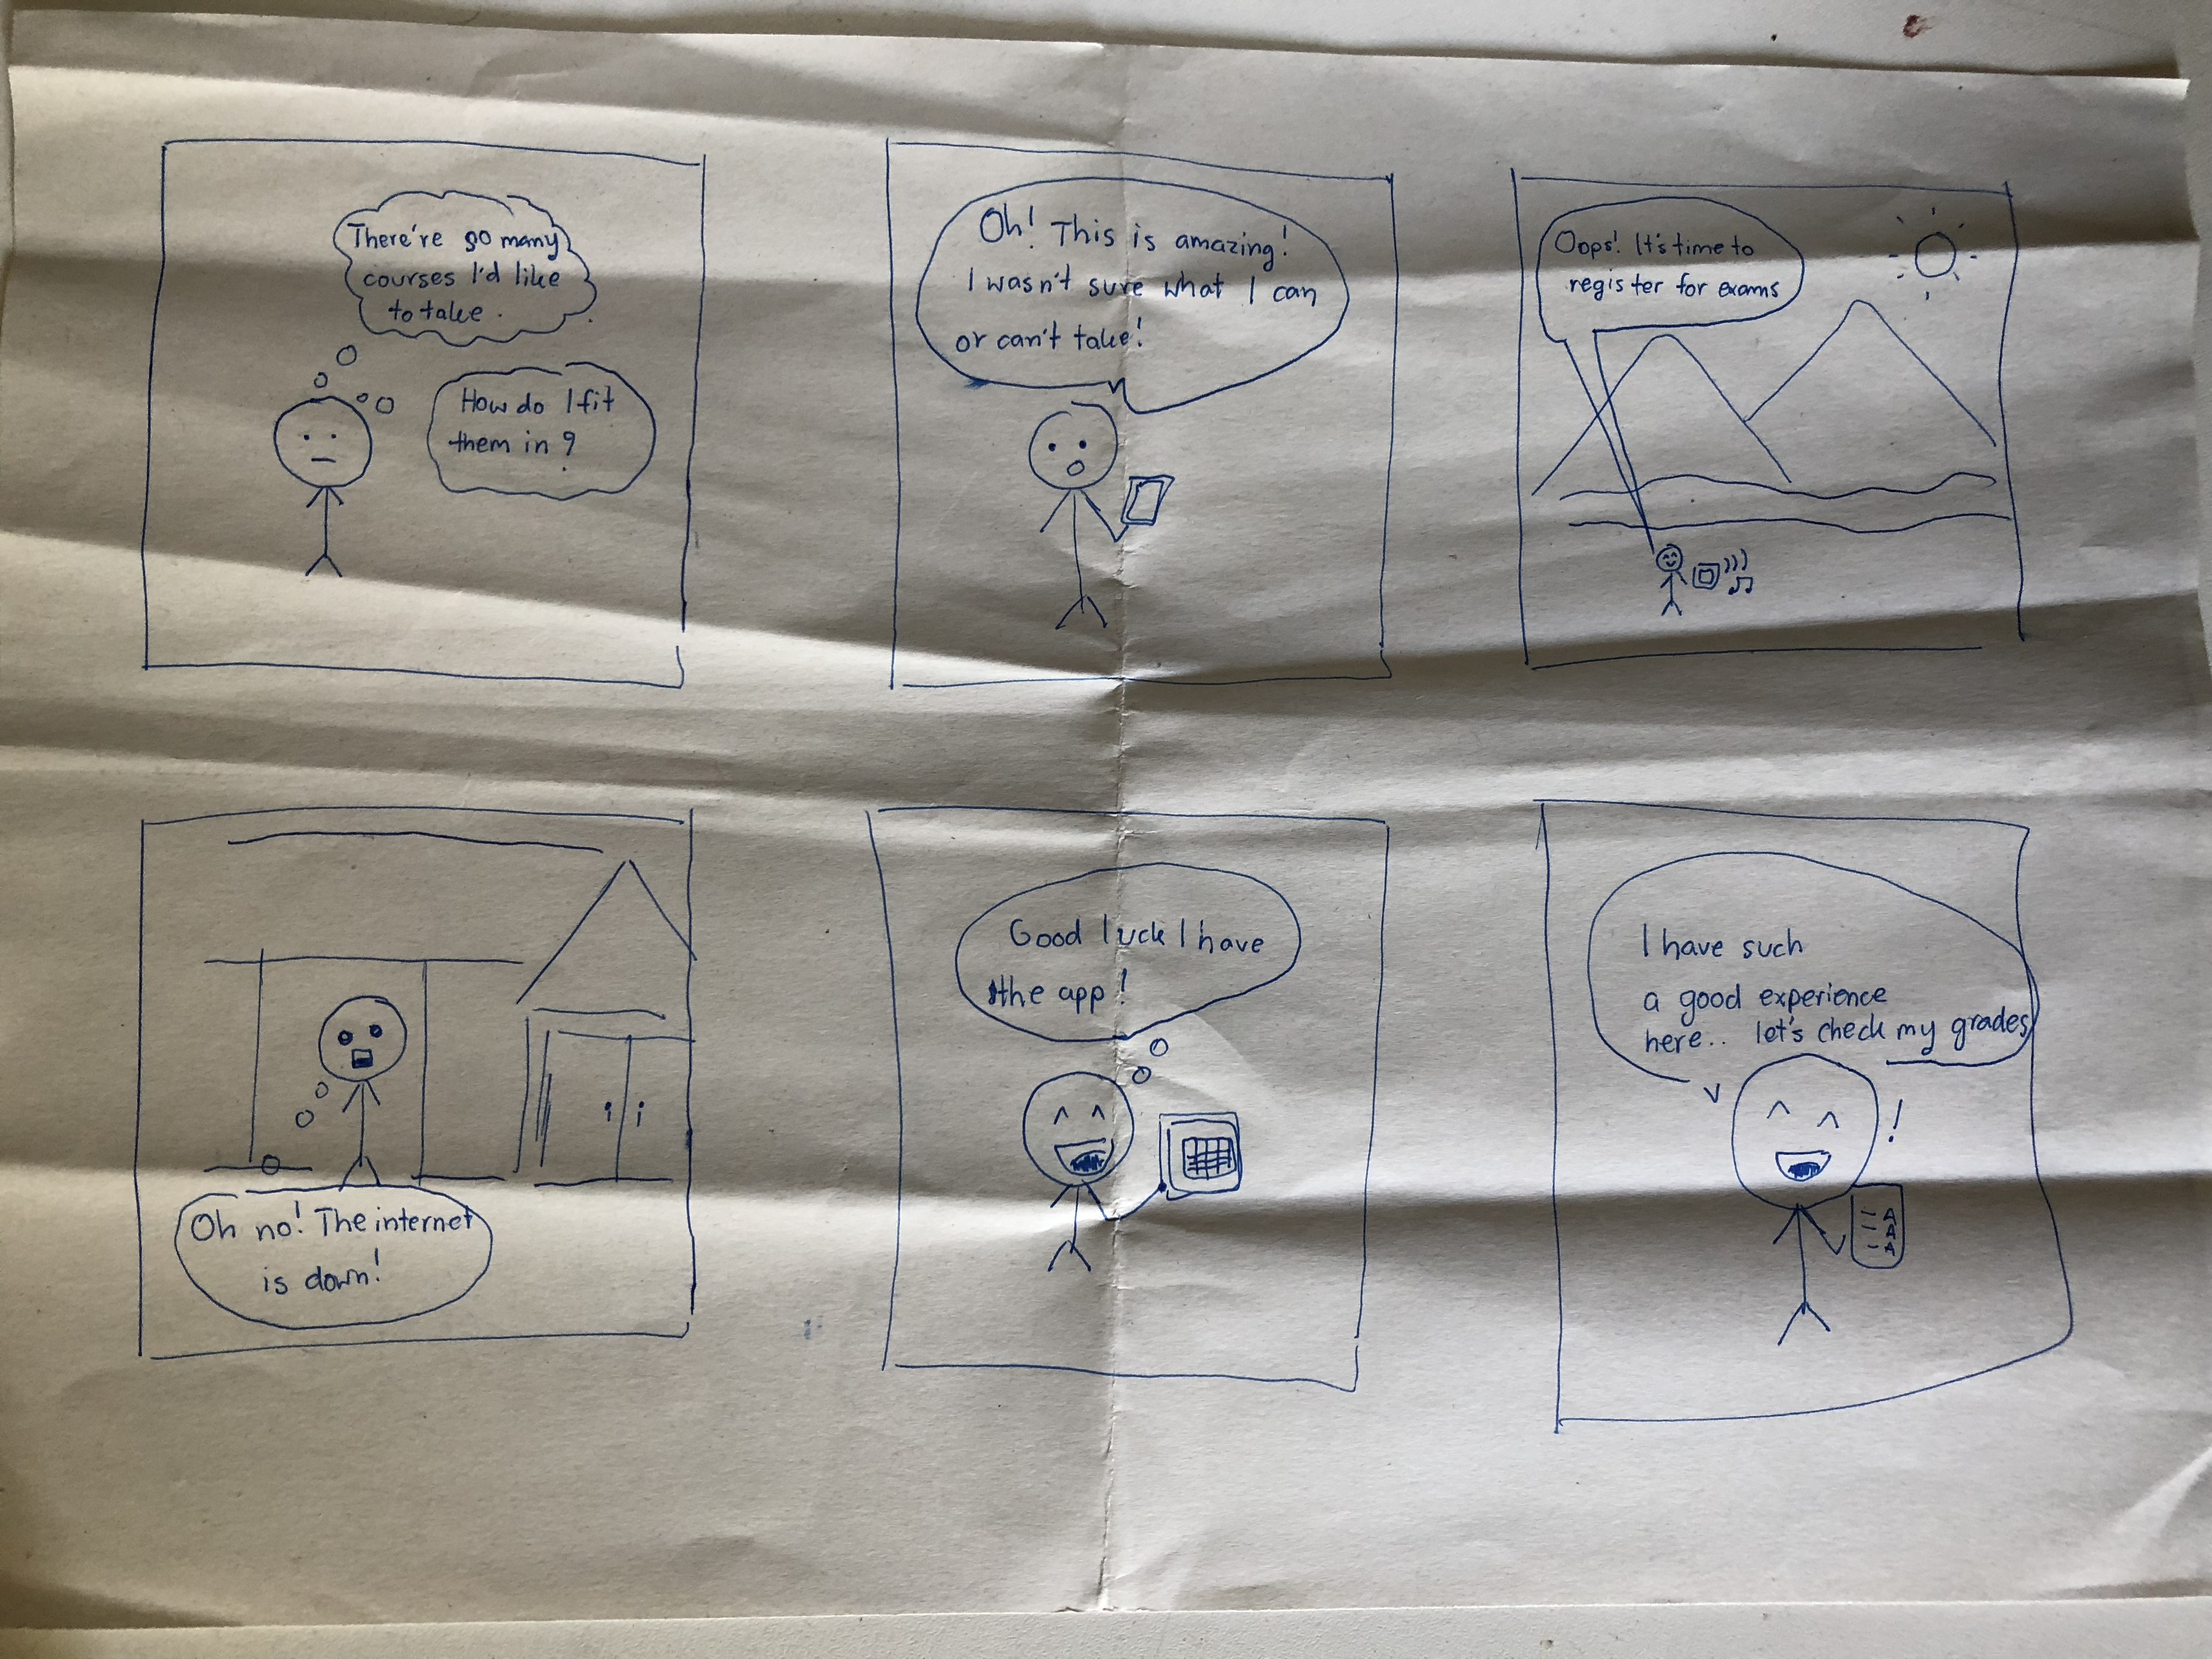 There're so many
courses I'd like
to take.
How do I fit
them in?
Oh! This is amazing!
I wasn't sure what I can
or can't take!
Oops! It's time to
register for exams
Oh no! The internet
is down!
Good luck I have
the app!
I have such
a good experience
here.. let's check my grades
!
A
A
A